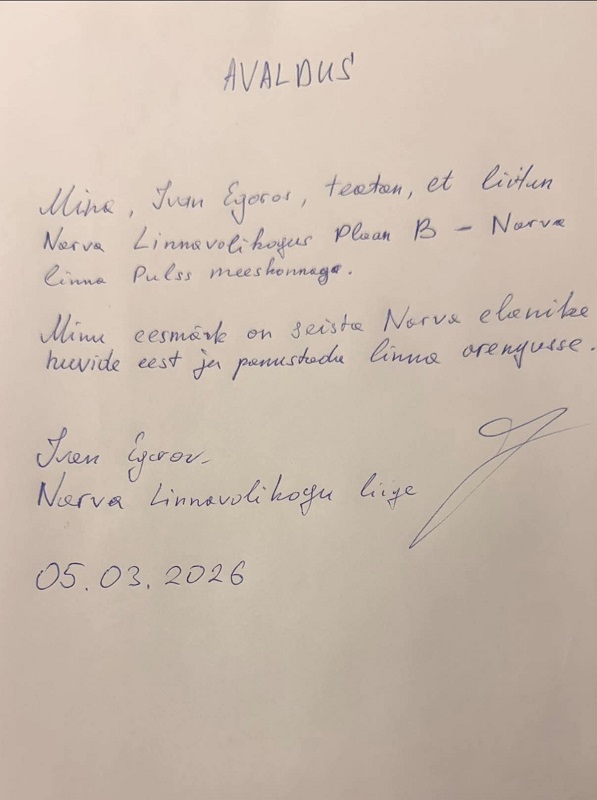 AVALDUS
Mina, Ivan Egorov, teatan, et liitun
Narva Linnavolikogus Plaan B – Narva
linna Pulss meeskonnaga.
Minu eesmärk on seista Narva elanike
huvide eest ja panustada linna arengusse.
Ivan Egorov
Narva Linnavolikogu liige
05.03.2026